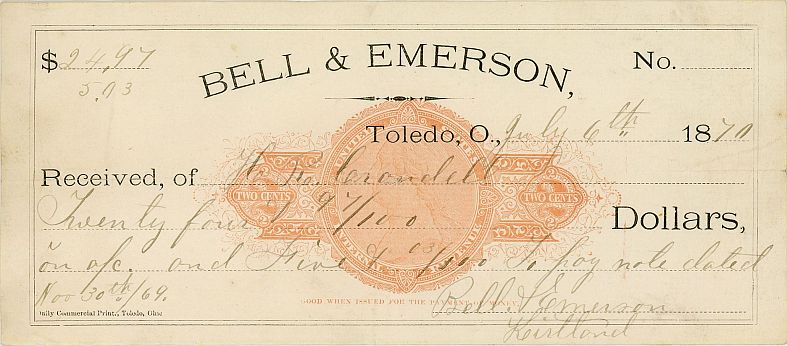 $ 24,97
5.03
BELL & EMERSON,
No.
Toledo, O., July 6th 1870
Received, of Crandell
Twenty four 97/100 Dollars,
on a/c. and Five & 03/100 To pay note dated
Nov 30th/69.
TWO CENTS
TWO CENTS
GOOD WHEN ISSUED FOR THE PAYMENT OF MONEY.
Bell & Emerson
Kirtland
Daily Commercial Print., Toledo, Ohio